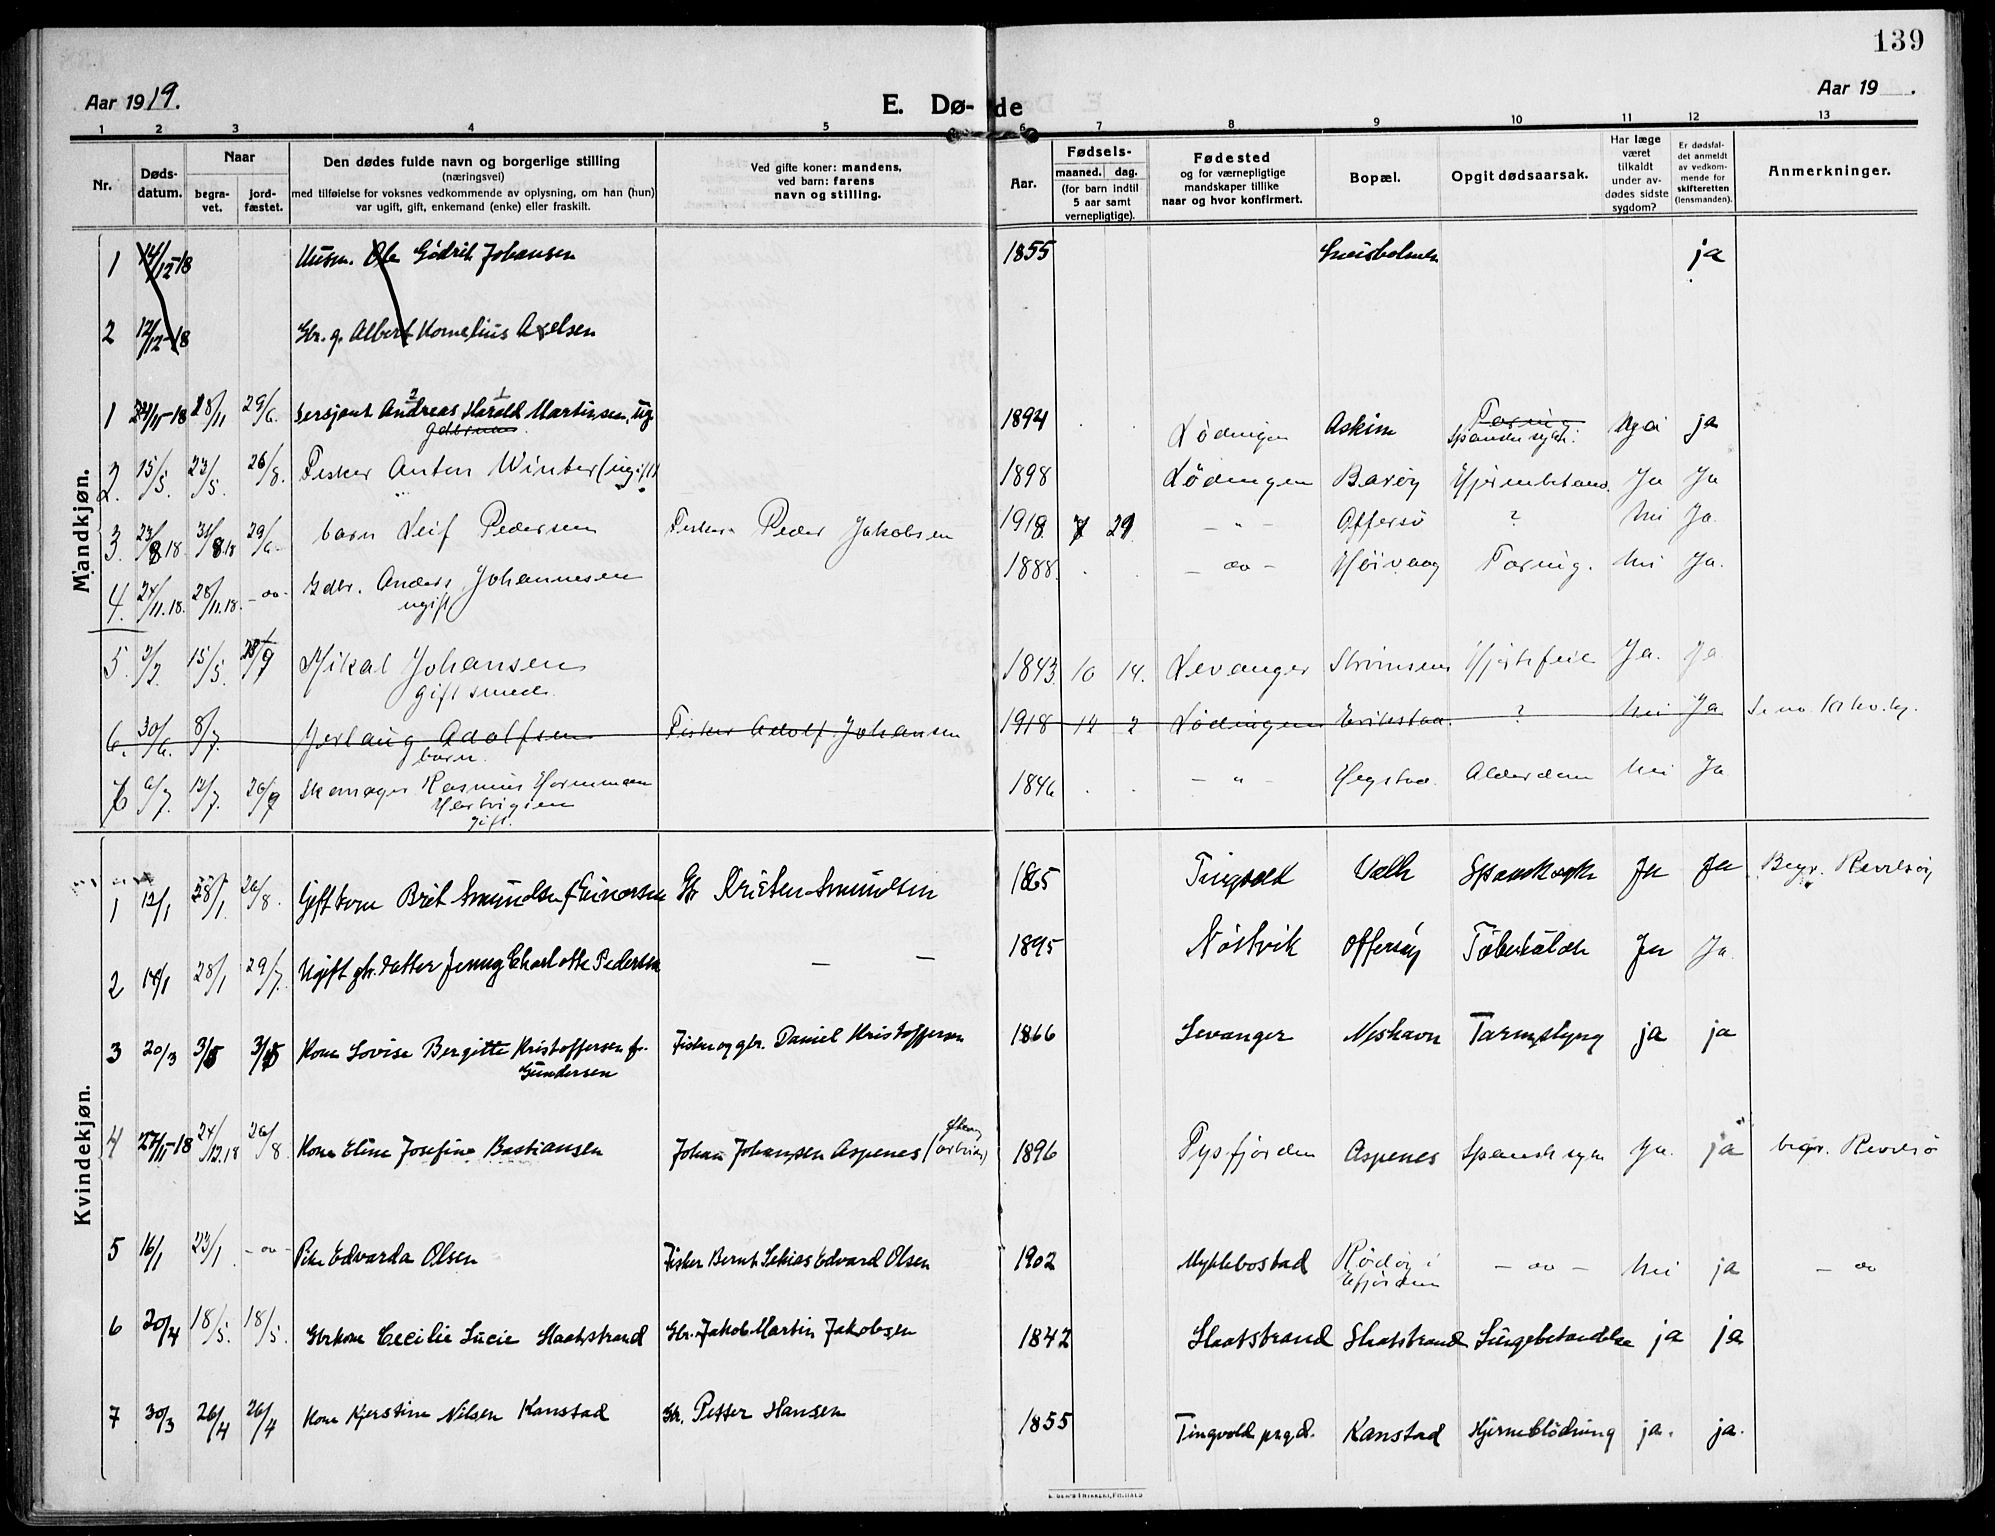 139
Aar 1919.
E. Dø- de
Aar 19 .
1 2 3 4 5 6 7 8 9 10 11 12 13
Nr.
Døds-
datum.
Naar
begra-
vet.
jord-
fæstet.
Den dødes fulde navn og borgerlige stilling
(næringsvei)
med tilføielse for voksnes vedkommende av oplysning, om han (hun)
var ugift, gift, enkemand (enke) eller fraskilt.
Ved gifte koner: mandens,
ved barn: farens
navn og stilling.
Aar.
Fødsels-
maaned. dag.
(for barn indtil
5 aar samt
vernepligtige).
Fødested
og for værnepligtige
mandskaper tillike
naar og hvor konfirmert.
Bopæl.
Opgit dødsaarsak.
Har læge
været
tilkaldt
under av-
dødes sidste
sygdom?
Er dødsfal-
det anmeldt
av vedkom-
mende for
skifteretten
(lensmanden).
Anmerkninger.
Mandkjøn.
1 14/12-18 Ole Gødrik Johansen 1855 ja
2 12/12-18 Gbr. g. Albert Kornelius Axelsen
1 24/11-18 28/11 29/6. Sersjant Andreas Harald Martinsen, ug. 1894 Lødingen Askim Tæring Spanske syke. Nei ja
2. 15/5. 23/5. 26/8. Fisker Anton Winter (ugift) 1898 Lødingen Barøy Hjernebetænd. Ja Ja
3. 23/8 18. 31/8 18 29/6. barn Leif Pedersen Fisker Peder Jakobsen 1918 7 29 - " - Offersø ? Nei Ja.
4. 24/11.18. 28/11.18. -"- Gdbr. Anders Johannesen 1888. - " - Høivaag Tæring. Nei Ja.
ugift
5. 3/7. 15/5. 28/9 Mikal Johansen 1843. 10 14. Levanger Hjertefeil Ja. Ja
gift smed.
6. 30/6. 8/7. Adolfsen Fisker Adolf Johansen 1918 12 2 Lødingen Erikstad. ? Nei Ja
barn.
6 6/7. 12/7. 26/9 Skomager Rasmus Hornmann 1846 - " - Hegstad. Alderdom Nei Ja
Hartvigsen
gift.
Kvindekjøn.
1 12/1 28/1. 26/8. Gift kone Brit Smundsen f. Einarsen Gbr Kristen Smundsen 1865 Tingvold Valle Spansksyke Ja Ja Begr. Revelsøy
2 14/1 28/1 29/7. Ugift gbr. datter Jenny Charlotte Pedersen — — 1895 Nøstvik Offersøy Tuberkulose Ja Ja
3 20/3 3/5 3/5 Kone Lovise Bergitte Kristoffersen f. Fisker og gbr. Daniel Kristoffersen 1866 Levanger Neshavn Tarmslyng ja ja
Gundersen
4 27/11-18 24/12.18 26/8. Kone Eline Josefine Bastiansen Johan Johansen Aspenes (arbeider) 1896 Tysfjorden Aspenes Spansk syke Ja. ja begr. Revelsø
5 16/1 23/1. -"- Pike Edvarda Olsen Fisker Bernt Sekias Edvard Olsen 1902 Myklebostad Rødøy i - " - Nei ja - "
Efjorden
6 20/4 18/5. 18/5. Gbr kone Cecilie Lucie Slaatstrand Gbr. Jakob Martin Jakobsen 1842 Slaatstrand Slaatstrand Lungebetændelse ja ja
7 30/3 26/4 26/4 Kone Kjerstine Nilsen Kanstad Gbr. Petter Hansen 1855 Tingvold prgd. Kanstad Hjerneblødning ja. ja.